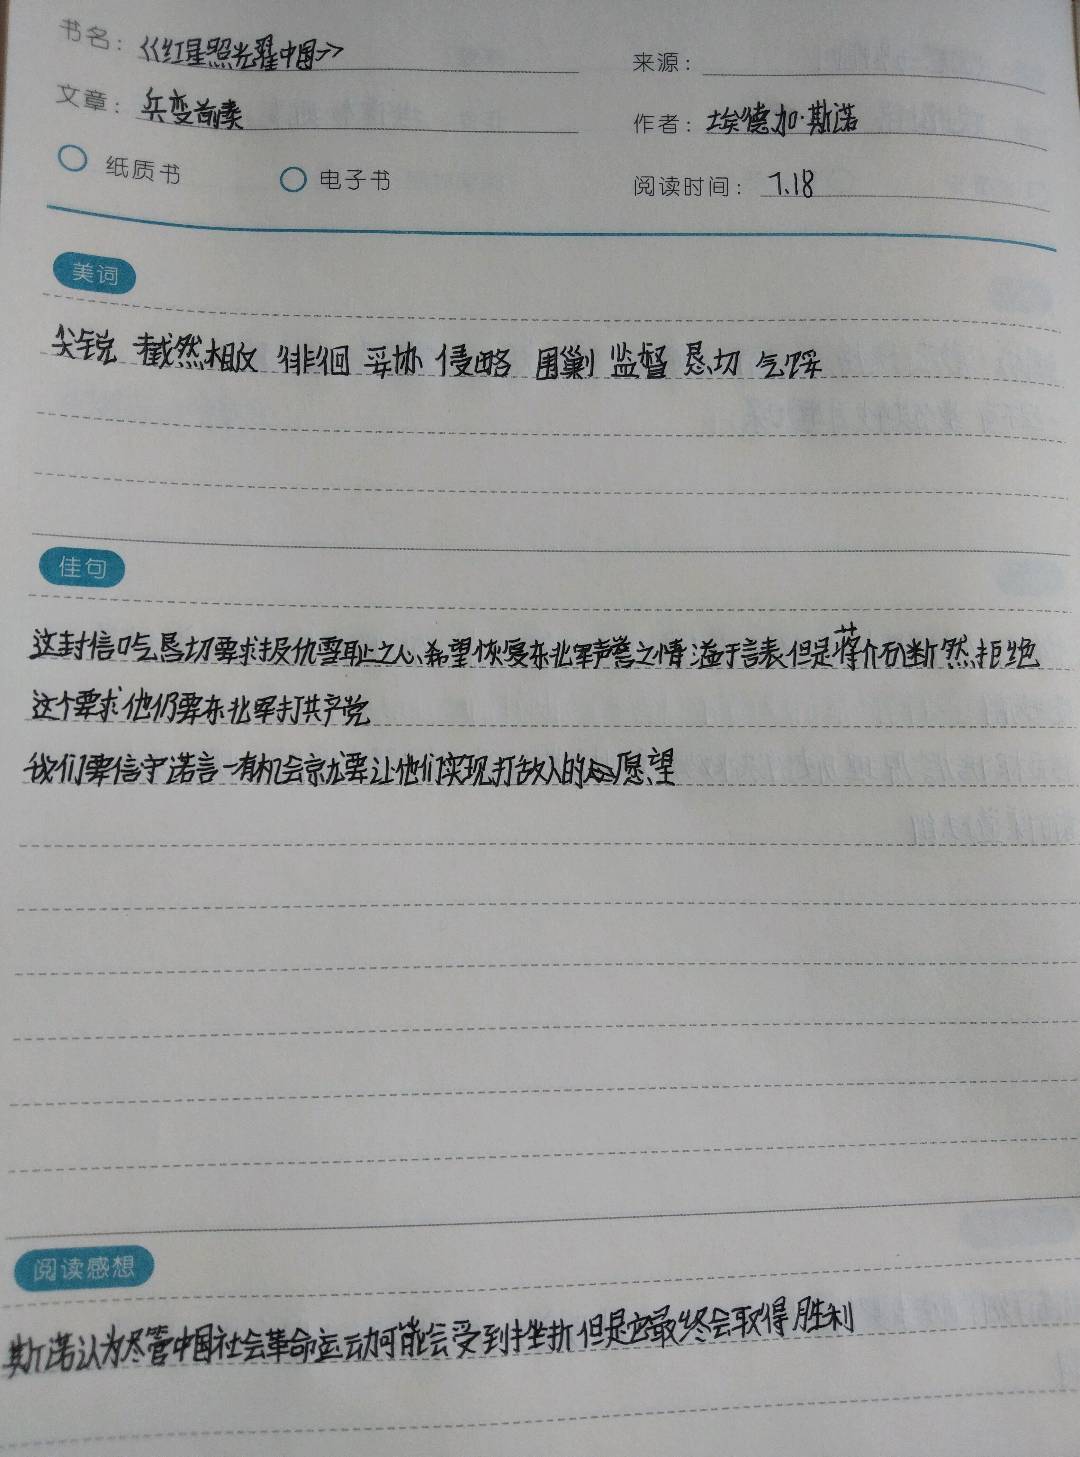 书名：《红星照光耀中国》
来源：
文章：兵变前奏
作者：埃德加·斯诺
纸质书
电子书
阅读时间：7.18
美词
尖锐 截然相反 徘徊 妥协 侵略 围剿 监督 恳切 气馁
佳句
这封信口气恳切要求报仇雪耻之心、希望恢复东北军声誉之情溢于言表但是蒋介石断然拒绝
这个要求他仍要东北军打共产党
我们要信守诺言一有机会就要让他们实现打敌人的愿望
阅读感想
斯诺认为尽管中国社会革命运动可能会受到挫折但是它最终会取得胜利